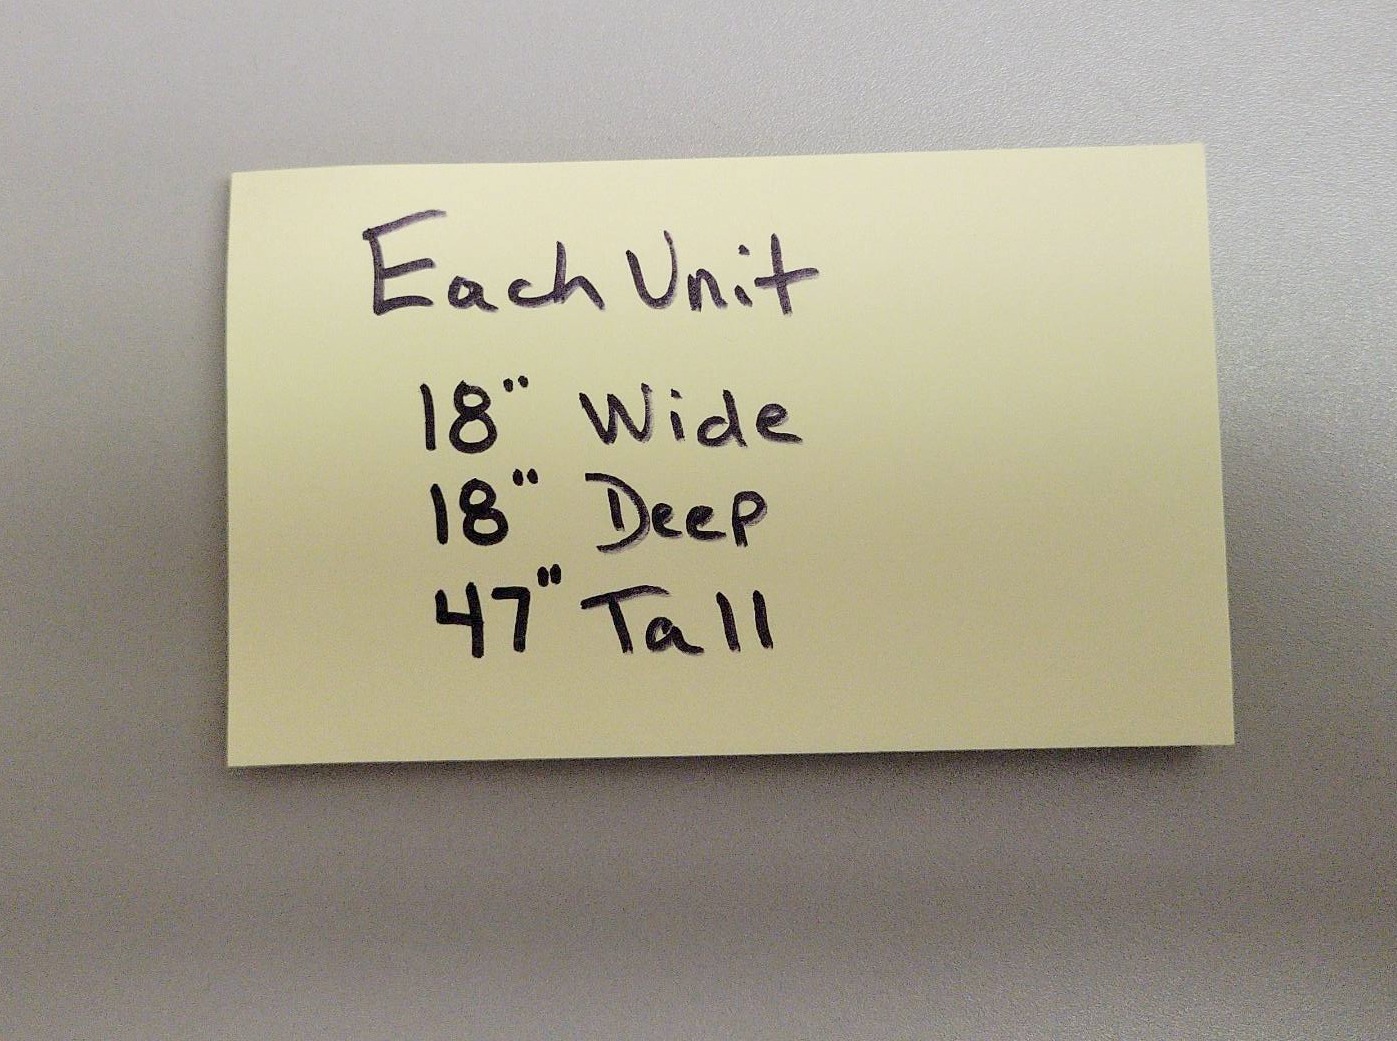 Each Unit
18" Wide
18" Deep
47" Tall